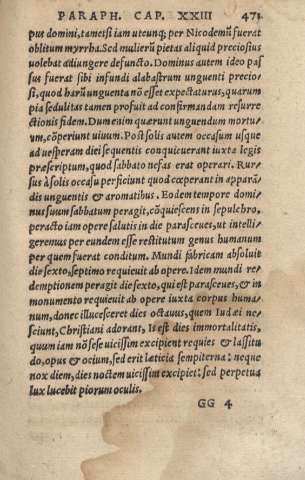 PARAPH. CAP. XXIII 471
pus domini, tametsi iam utcunq; per Nicodemū fuerat
oblitum myrrha. Sed mulierū pietas aliquid preciosius
uolebat adiungere defuncto. Dominus autem ideo pas
sus fuerat sibi infundi alabastrum unguenti precio-
si, quod harū unguenta nō esset expectaturus, quarum
pia sedulitas tamen profuit ad confirmandam resurre
ctionis fidem. Dum enim quærunt unguendum mortu-
um, cōperiunt uiuum. Post solis autem occasum usque
ad uesperam diei sequentis conquieuerant iuxta legis
præscriptum, quod sabbato nefas erat operari. Rur-
sus à solis occasu perficiunt quod cœperant in apparā
dis unguentis & aromatibus. Eodem tempore domi-
nus suum sabbatum peragit, cōquiescens in sepulchro,
peracto iam opere salutis in die parasceues, ut intelli-
geremus per eundem esse restitutum genus humanum
per quem fuerat conditum. Mundi fabricam absoluit
die sexto, septimo requieuit ab opere. Idem mundi re-
demptionem peragit die sexto, qui est parasceues, & in
monumento requieuit ab opere iuxta corpus huma-
num, donec illucesceret dies octauus, quem Iudæi ne-
sciunt, Christiani adorant. Is est dies immortalitatis,
quum iam nō sese uicissim excipient requies & lassitu
do, opus & ocium, sed erit læticia sempiterna: neque
nox diem, dies noctem uicissim excipiet: sed perpetua
lux lucebit piorum oculis.
GG 4